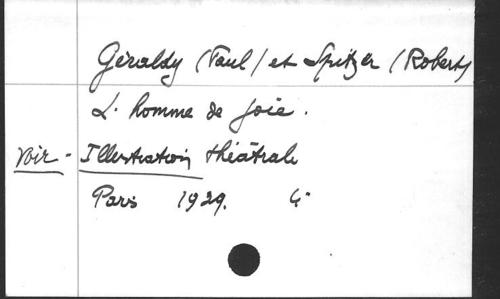 Géraldy (Paul) et Spitzer (Robert)
L'homme de joie.
voir - Illustration théâtrale
Paris 1929. 4°